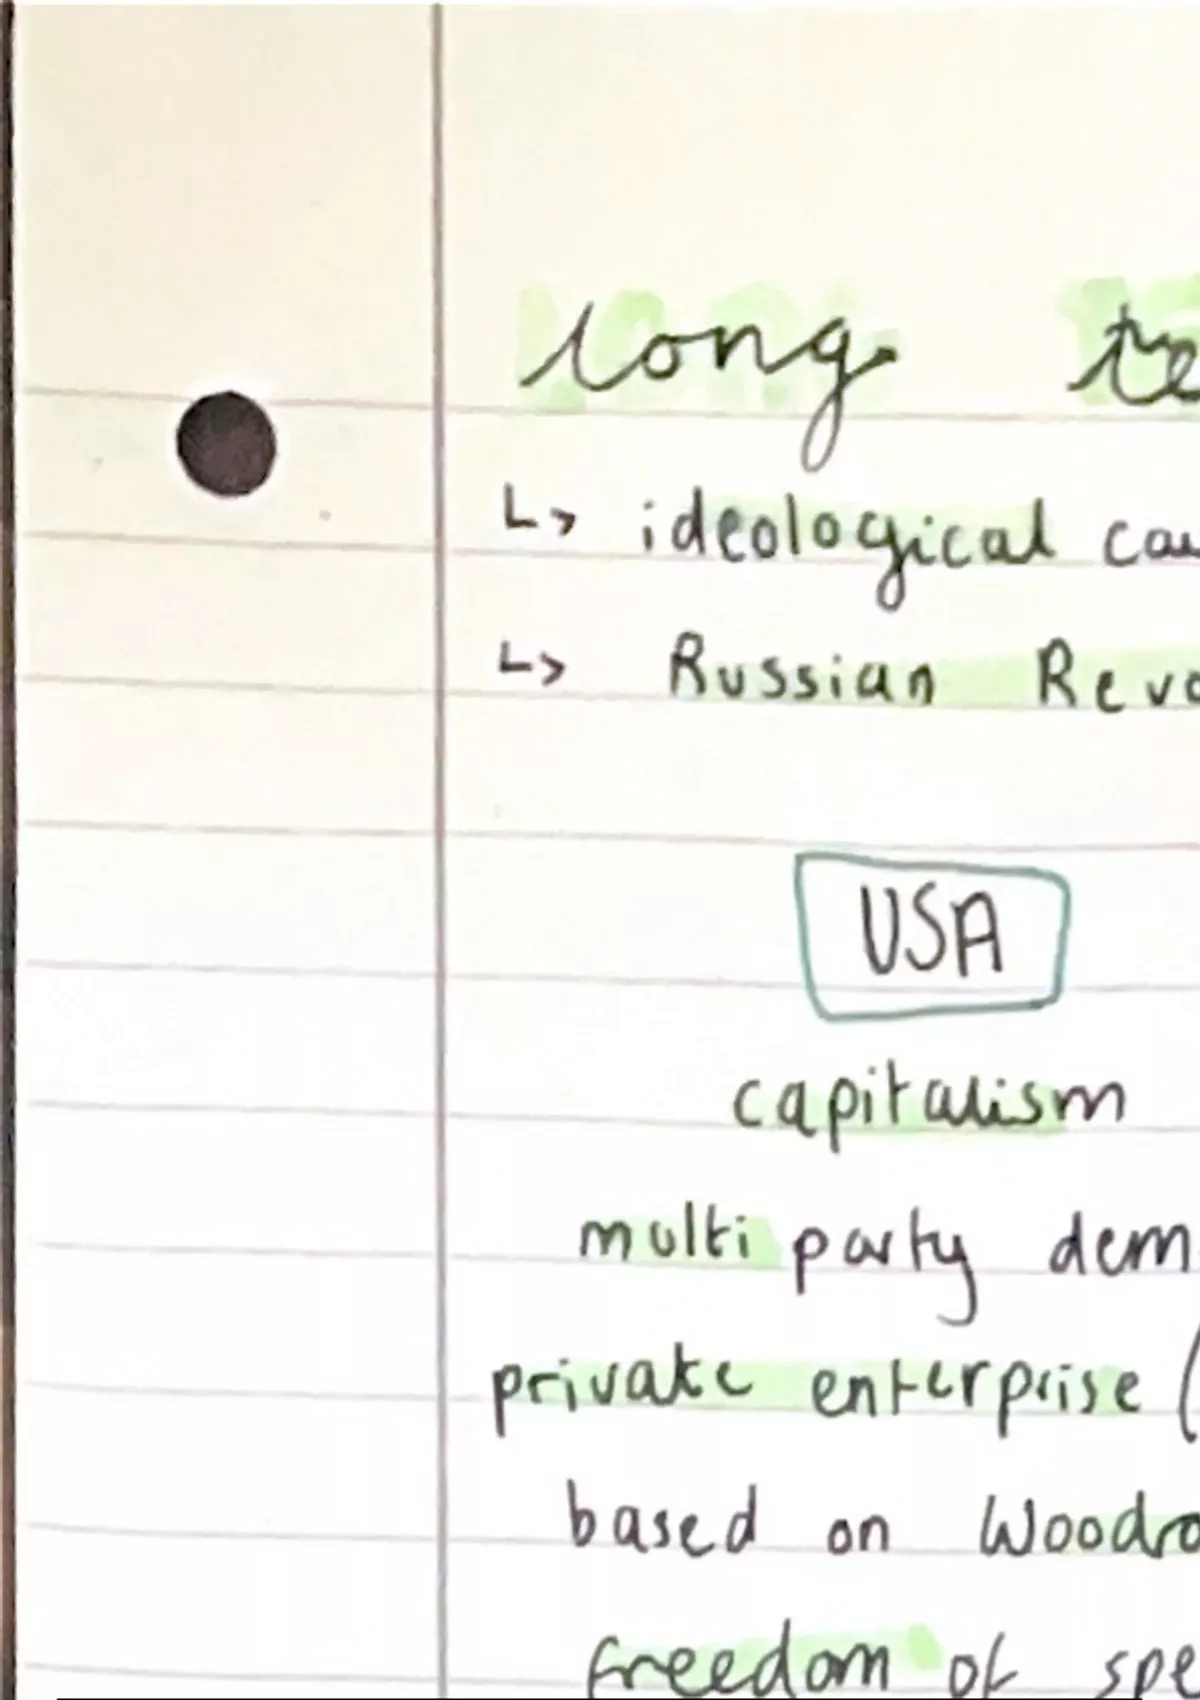 long te
↳ ideological cau
↳ Russian Revo
USA
capitalism
multi party dem
private enterprise (
based on Woodro
freedom of spe